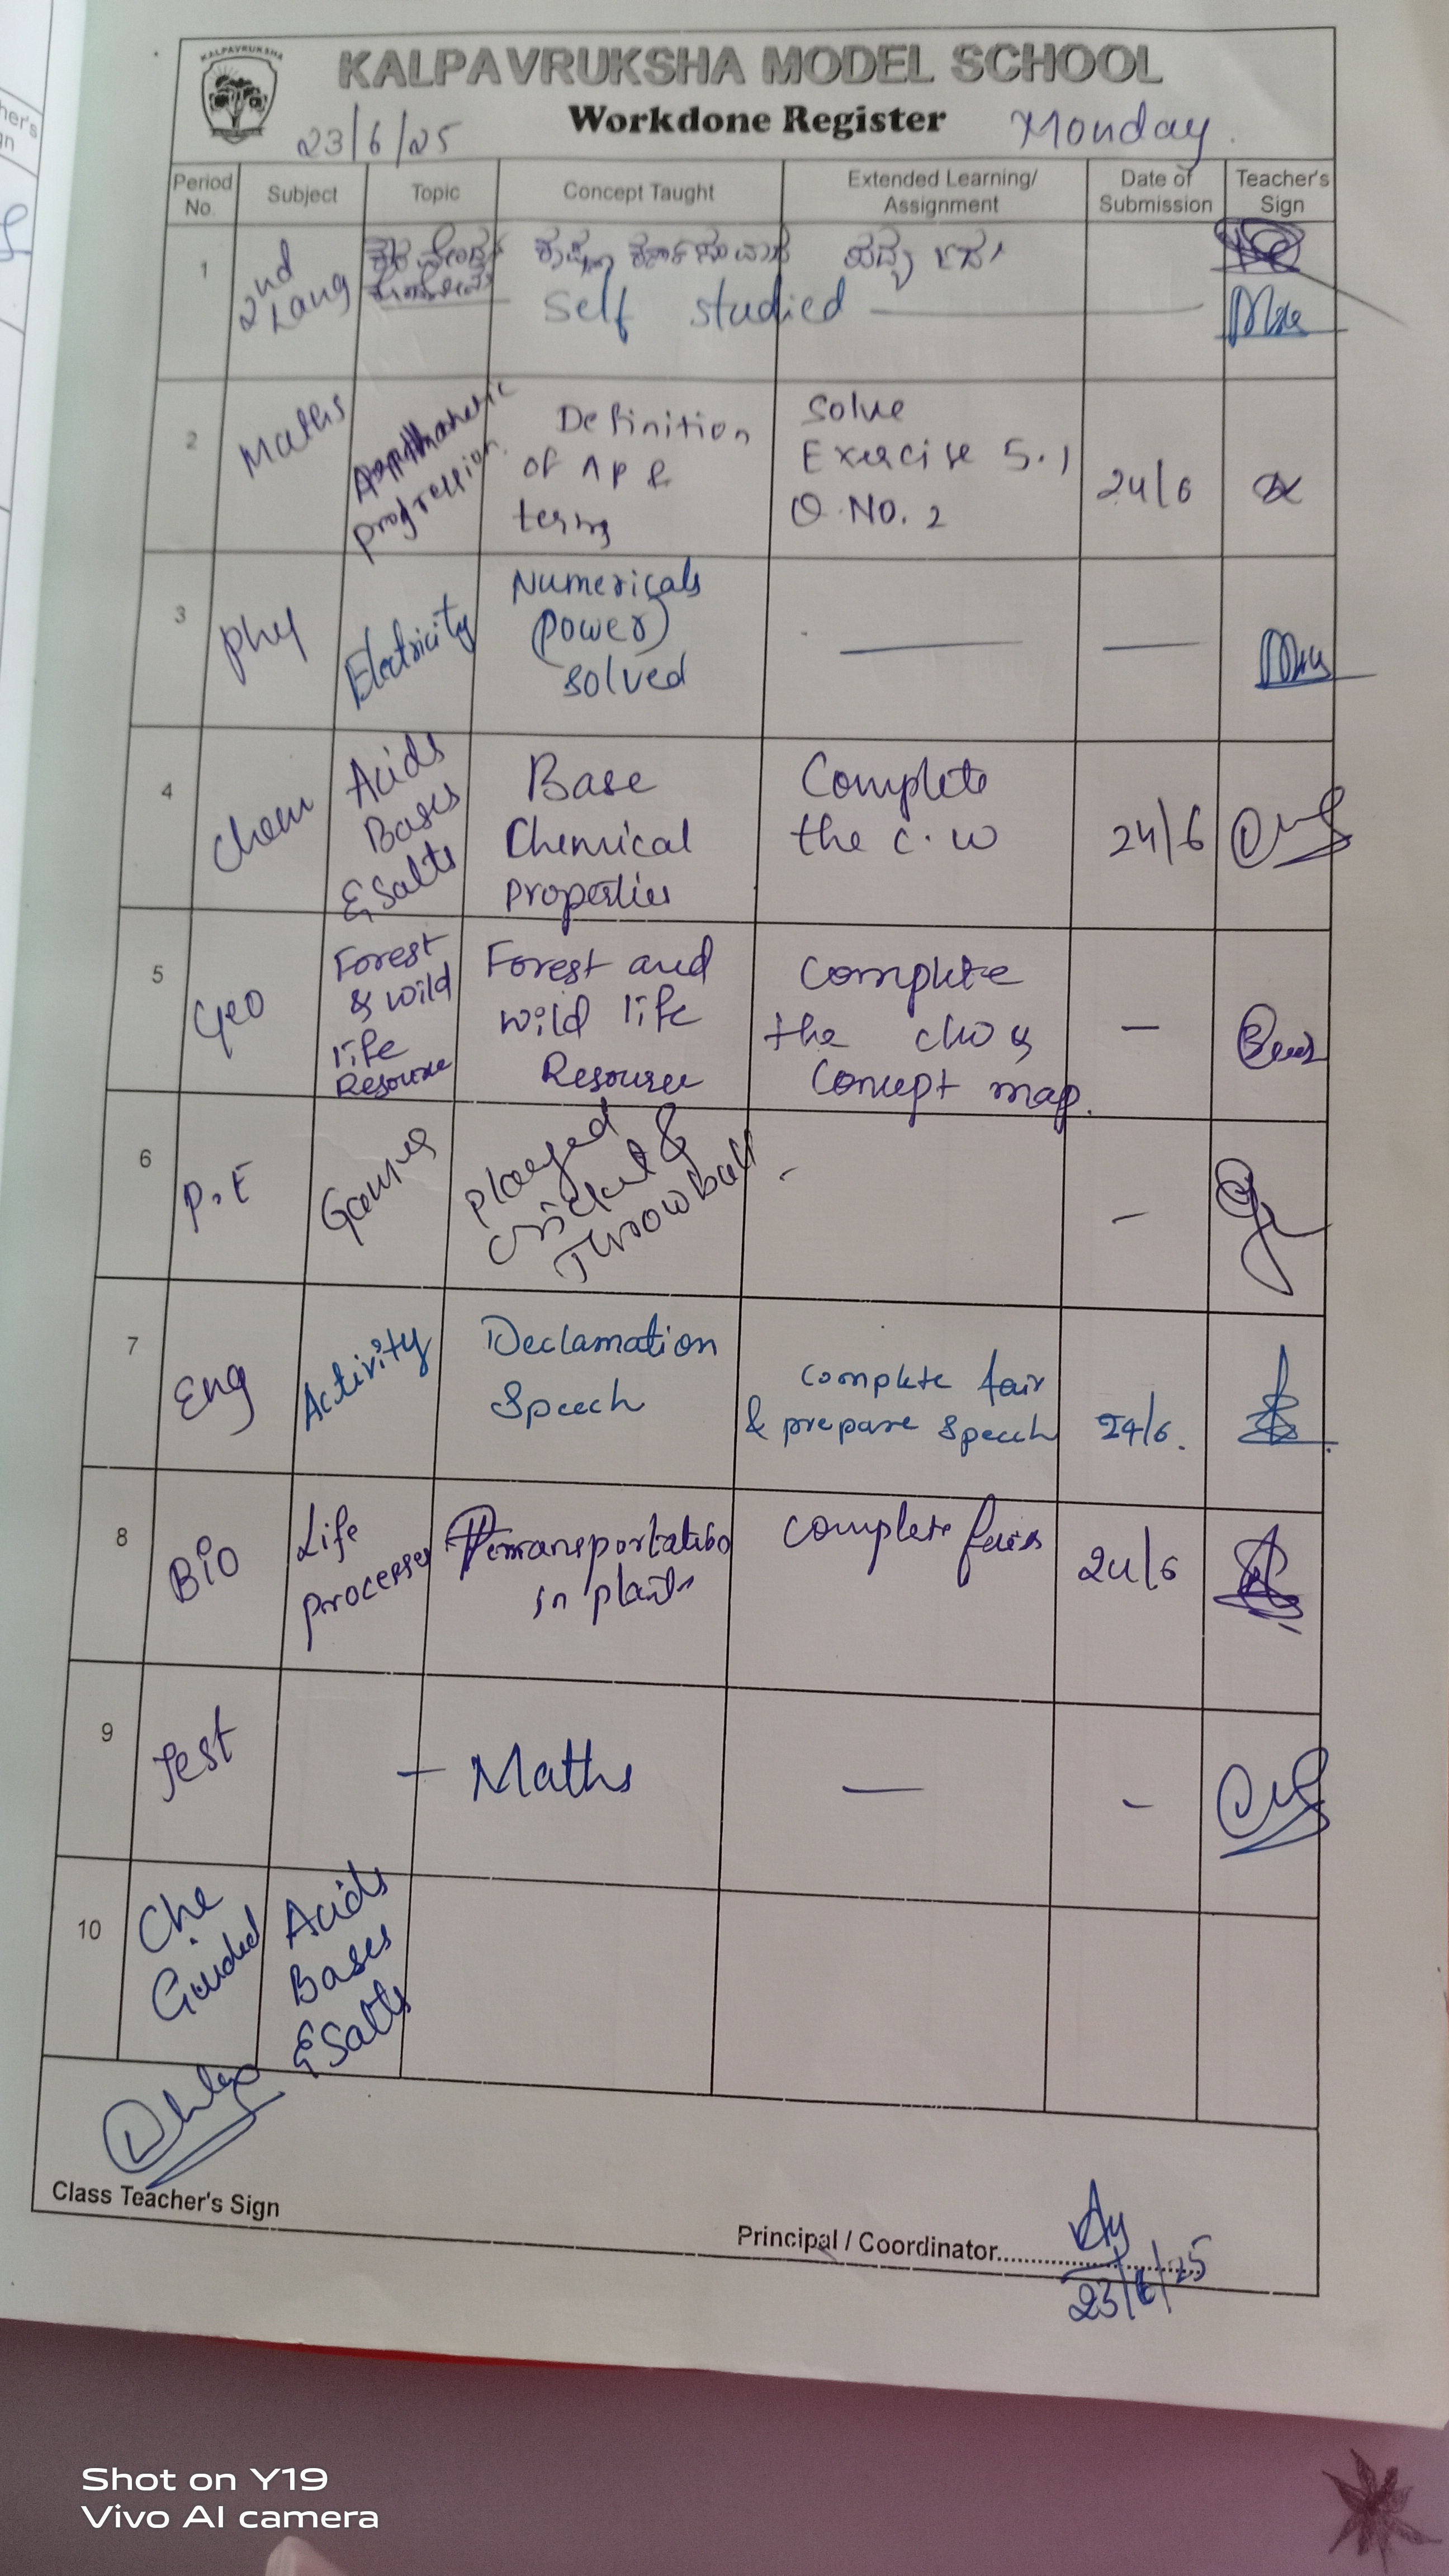 KALPAVRUKSHA
KALPAVRUKSHA MODEL SCHOOL
Workdone Register
23/6/25
Monday
Period No.
Subject
Topic
Concept Taught
Extended Learning/ Assignment
Date of Submission
Teacher's Sign
1
2nd
Lang
Self studied
2
Maths
progression
Definition
of AP &
terms
Solve
Exercise 5.1
Q.NO. 2
24/6
3
Phy
Electricity
Numericals
(power)
solved
4
Chem
Acids
Bases
& Salts
Base
Chemical
properties
Complete
the c.w
24/6
5
Geo
Forest
& wild
life
Resource
Forest and
wild life
Resource
Complete
the
Concept map.
6
P.E
Games
played
cricket &
Throwball
-
-
7
Eng
Activity
Declamation
Speech
complete fair
& prepare speech
24/6.
8
Bio
Life
processes
in plants
complete fair
24/6
9
Test
- Maths
-
-
10
Che
Guided
Acids
Bases
& Salts
Class Teacher's Sign
Principal / Coordinator
23/6/25
Shot on Y19
Vivo AI camera